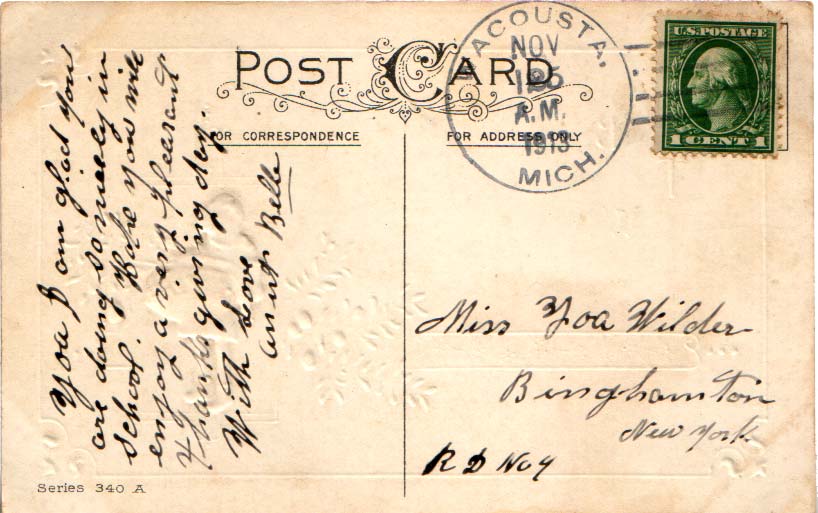 POST CARD
FOR CORRESPONDENCE
FOR ADDRESS ONLY
WACOUSTA.
NOV
A.M.
1913
MICH.
U.S. POSTAGE
1 CENT 1
Yoa I am glad you
are doing so nicely in
school. Hope you will
enjoy a very pleasant
thanks giving day.
With love
aunt Belle
Miss Yoa Wilder
Binghamton
New York
R D No 4
Series 340 A